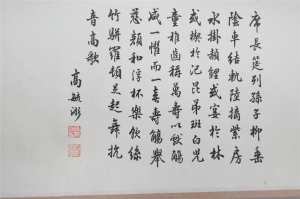 席長筵列孫子柳垂
陰車結軌陸摘紫房
水掛赬鯉或宴於林
或禊於汜昆弟班白兒
童稚齒稱萬壽以獻觴
咸一懼而一喜壽觴舉
慈顏和浮杯樂飲絲
竹駢羅頓足起舞抗
音高歌
高毓浵